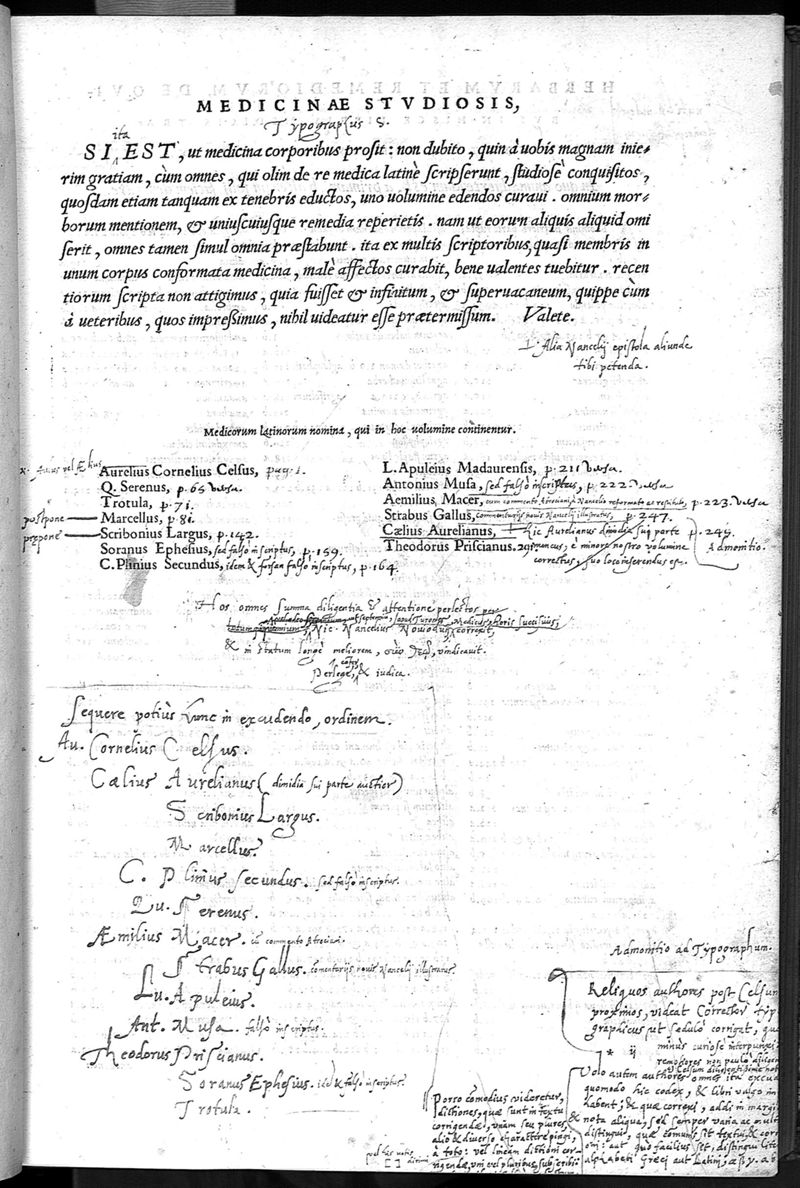 MEDICINAE STVDIOSIS,
Typographus S.
ita
SI EST, ut medicina corporibus prosit: non dubito, quin à uobis magnam inie-
rim gratiam, cùm omnes, qui olim de re medica latinè scripserunt, studiosè conquisitos,
quosdam etiam tanquam ex tenebris eductos, uno uolumine edendos curaui. omnium mor-
borum mentionem, & uniuscuiusque remedia reperietis. nam ut eorum aliquis aliquid omi
serit, omnes tamen simul omnia præstabunt. ita ex multis scriptoribus, quasi membris in
unum corpus conformata medicina, malè affectos curabit, bene ualentes tuebitur. recen
tiorum scripta non attigimus, quia fuisset & infinitum, & superuacaneum, quippe cùm
à ueteribus, quos impreßimus, nihil uideatur esse prætermissum. Valete.
Alia Nancelij epistola aliunde
tibi petenda.
Medicorum latinorum nomina, qui in hoc uolumine continentur.
Aurelius Cornelius Celsus, pag. 1.
Q. Serenus, p. 65 versa.
Trotula, p. 71.
postpone Marcellus, p. 81.
prepone Scribonius Largus, p. 142.
Soranus Ephesius, sed falsò inscriptus, p. 159.
C. Plinius Secundus, idem & forsan falsò inscriptus, p. 164.
L. Apuleius Madaurensis, p. 211 versa.
Antonius Musa, sed falsò inscriptus, p. 222 versa
Aemilius Macer, cum commento Atrociani, à Nancelio reformato ac restituto, p. 223. versa
Strabus Gallus, commentarijs nouis Nancelij illustratus, p. 247.
Cælius Aurelianus, Hic Aurelianus dimidia sui parte p. 249.
Theodorus Priscianus. 291
truncus, è minore nostro volumine
correctus, suo loco inserendus est.
Admonitio.
Hos omnes summa diligentia & attentione perlectos
Nic. Nancelius Nouiodu. correxit,
& in statum longè meliorem, vindicauit.
Perlege, & iudica.
Sequere potiùs hunc in excudendo, ordinem.
Au. Cornelius Celsus.
Cælius Aurelianus (dimidia sui parte auctior)
Scribonius Largus.
Marcellus.
C. Plinius Secundus. sed falsò inscriptus.
Qu. Serenus.
Æmilius Macer. cū commento Atrociani.
Strabus Gallus. commentarijs nouis Nancelij illustratus.
Lu. Apuleius.
Ant. Musa. falsò inscriptus.
Theodorus Priscianus.
Soranus Ephesius. idē & falsò inscriptus.
Trotula.
Admonitio ad Typographum.
Reliquos authores post Celsum
proximos, videat Corrector typo
graphicus ut sedulò corrigat,
minùs curiosè
Volo autem authores omnes ita
quomodo hic codex, & libri valgo
habent; & quæ correxi, addi in margi
nota aliqua, sed semper varia
distingui,
alphabeti Græci aut Latini, α β γ. a b
Porrò comodius videretur,
dictiones, quæ sunt in textu
corrigendæ, vnam seu plures,
alio & diuerso charactere pingi,